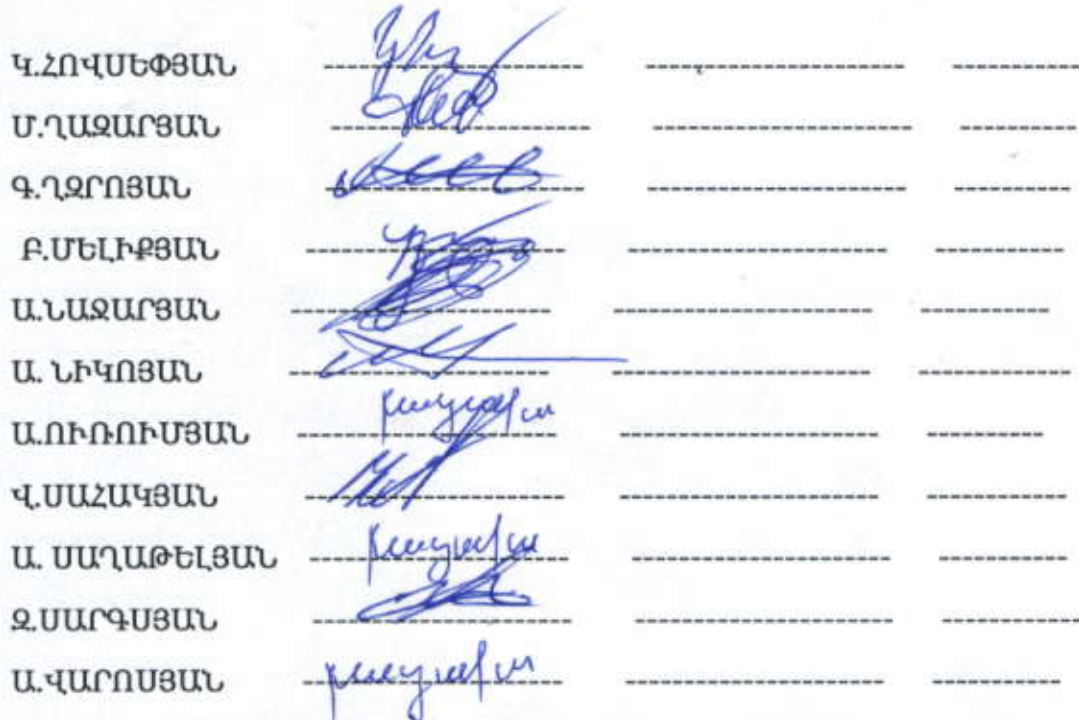 Կ.ՀՈՎՍԵՓՅԱՆ
Մ.ՂԱԶԱՐՅԱՆ
Գ.ՂԶՐՈՅԱՆ
Բ.ՄԵԼԻՔՅԱՆ
Ա.ՆԱՋԱՐՅԱՆ
Ա. ՆԻԿՈՅԱՆ
Ա.ՈՒՌՈՒՄՅԱՆ
Վ.ՍԱՀԱԿՅԱՆ
Ա. ՍԱՂԱԹԵԼՅԱՆ
Զ.ՍԱՐԳՍՅԱՆ
Ա.ՎԱՐՈՍՅԱՆ